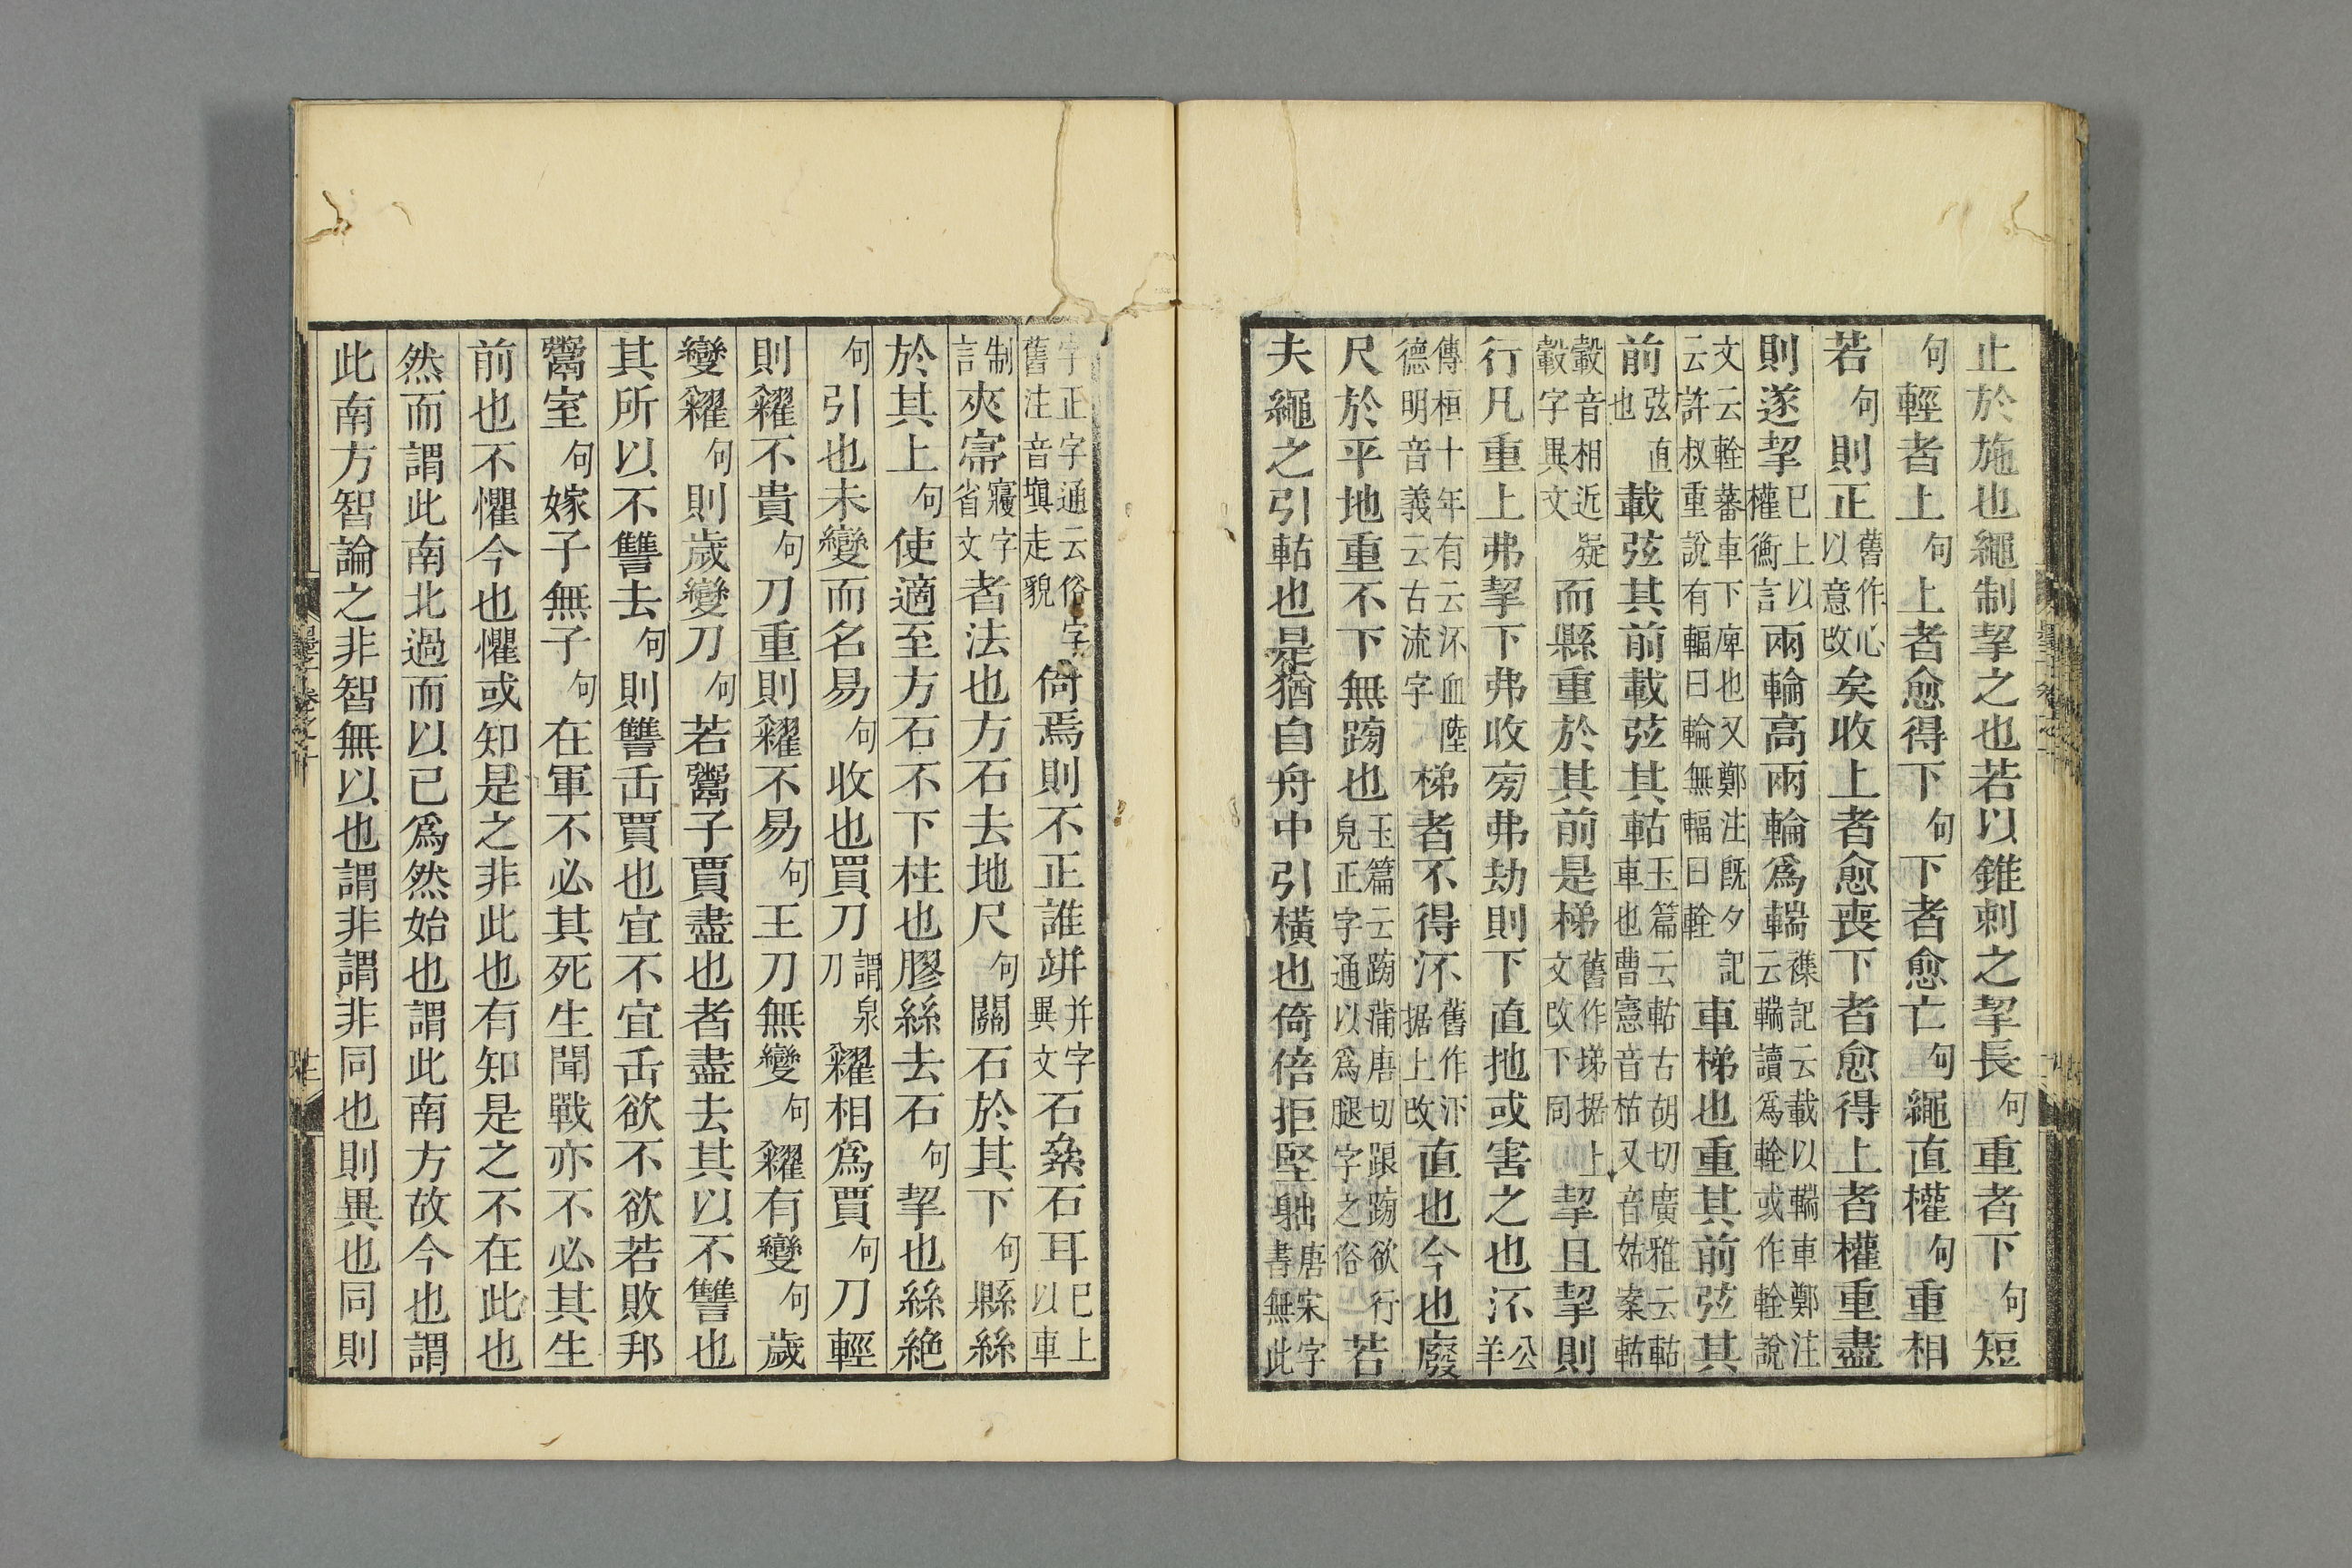 止於施也繩制挈之也若以錐刺之挈長句重者下句短
句輕者上句上者愈得下句下者愈亡句繩直權句重相
若句則正舊作心以意改矣收上者愈喪下者愈得上者權重盡
則遂挈巳上以權衡言兩輪高兩輪爲輲襍記云載以輲車鄭注云輲讀爲輇或作輇說
文云輇蕃車下庳也又鄭注旣夕記云許叔重說有輻曰輪無輻曰輇車梯也重其前弦其
前弦直也載弦其前載弦其軲玉篇云軲古胡切廣雅云軲車也曹憲音枯又音姑案軲
轂音相近疑轂字異文而縣重於其前是梯舊作埽据上文改下同挈且挈則
行凡重上弗挈下弗收旁弗劫則下直扡或害之也㳅公羊
傳桓十年有云㳅血陸德明音義云古流字梯者不得㳅舊作汿据上改直也今也廢
尺於平地重不下無䠙也玉篇云䠙蒲唐切踉䠙欲行皃正字通以爲腿字之俗若
夫繩之引軲也是猶自舟中引橫也倚倍拒堅䠳唐宋字書無此
字正字通云俗字舊注音塡走貌倚焉則不正誰竮并字異文石絫石耳巳上以車
制言夾㝲寢字省文者法也方石去地尺句關石於其下句縣絲
於其上句使適至方石不下柱也膠絲去石句挈也絲絶
句引也未變而名易句收也買刀謂泉刀糴相爲賈句刀輕
則糴不貴句刀重則糴不易句王刀無變句糴有變句歲
變糴句則歲變刀句若鬻子賈盡也者盡去其以不讐也
其所以不讐去句則讐𠮷賈也宜不宜𠮷欲不欲若敗邦
鬻室句嫁子無子句在軍不必其死生聞戰亦不必其生
前也不懼今也懼或知是之非此也有知是之不在此也
然而謂此南北過而以已爲然始也謂此南方故今也謂
此南方智論之非智無以也謂非謂非同也則異也同則